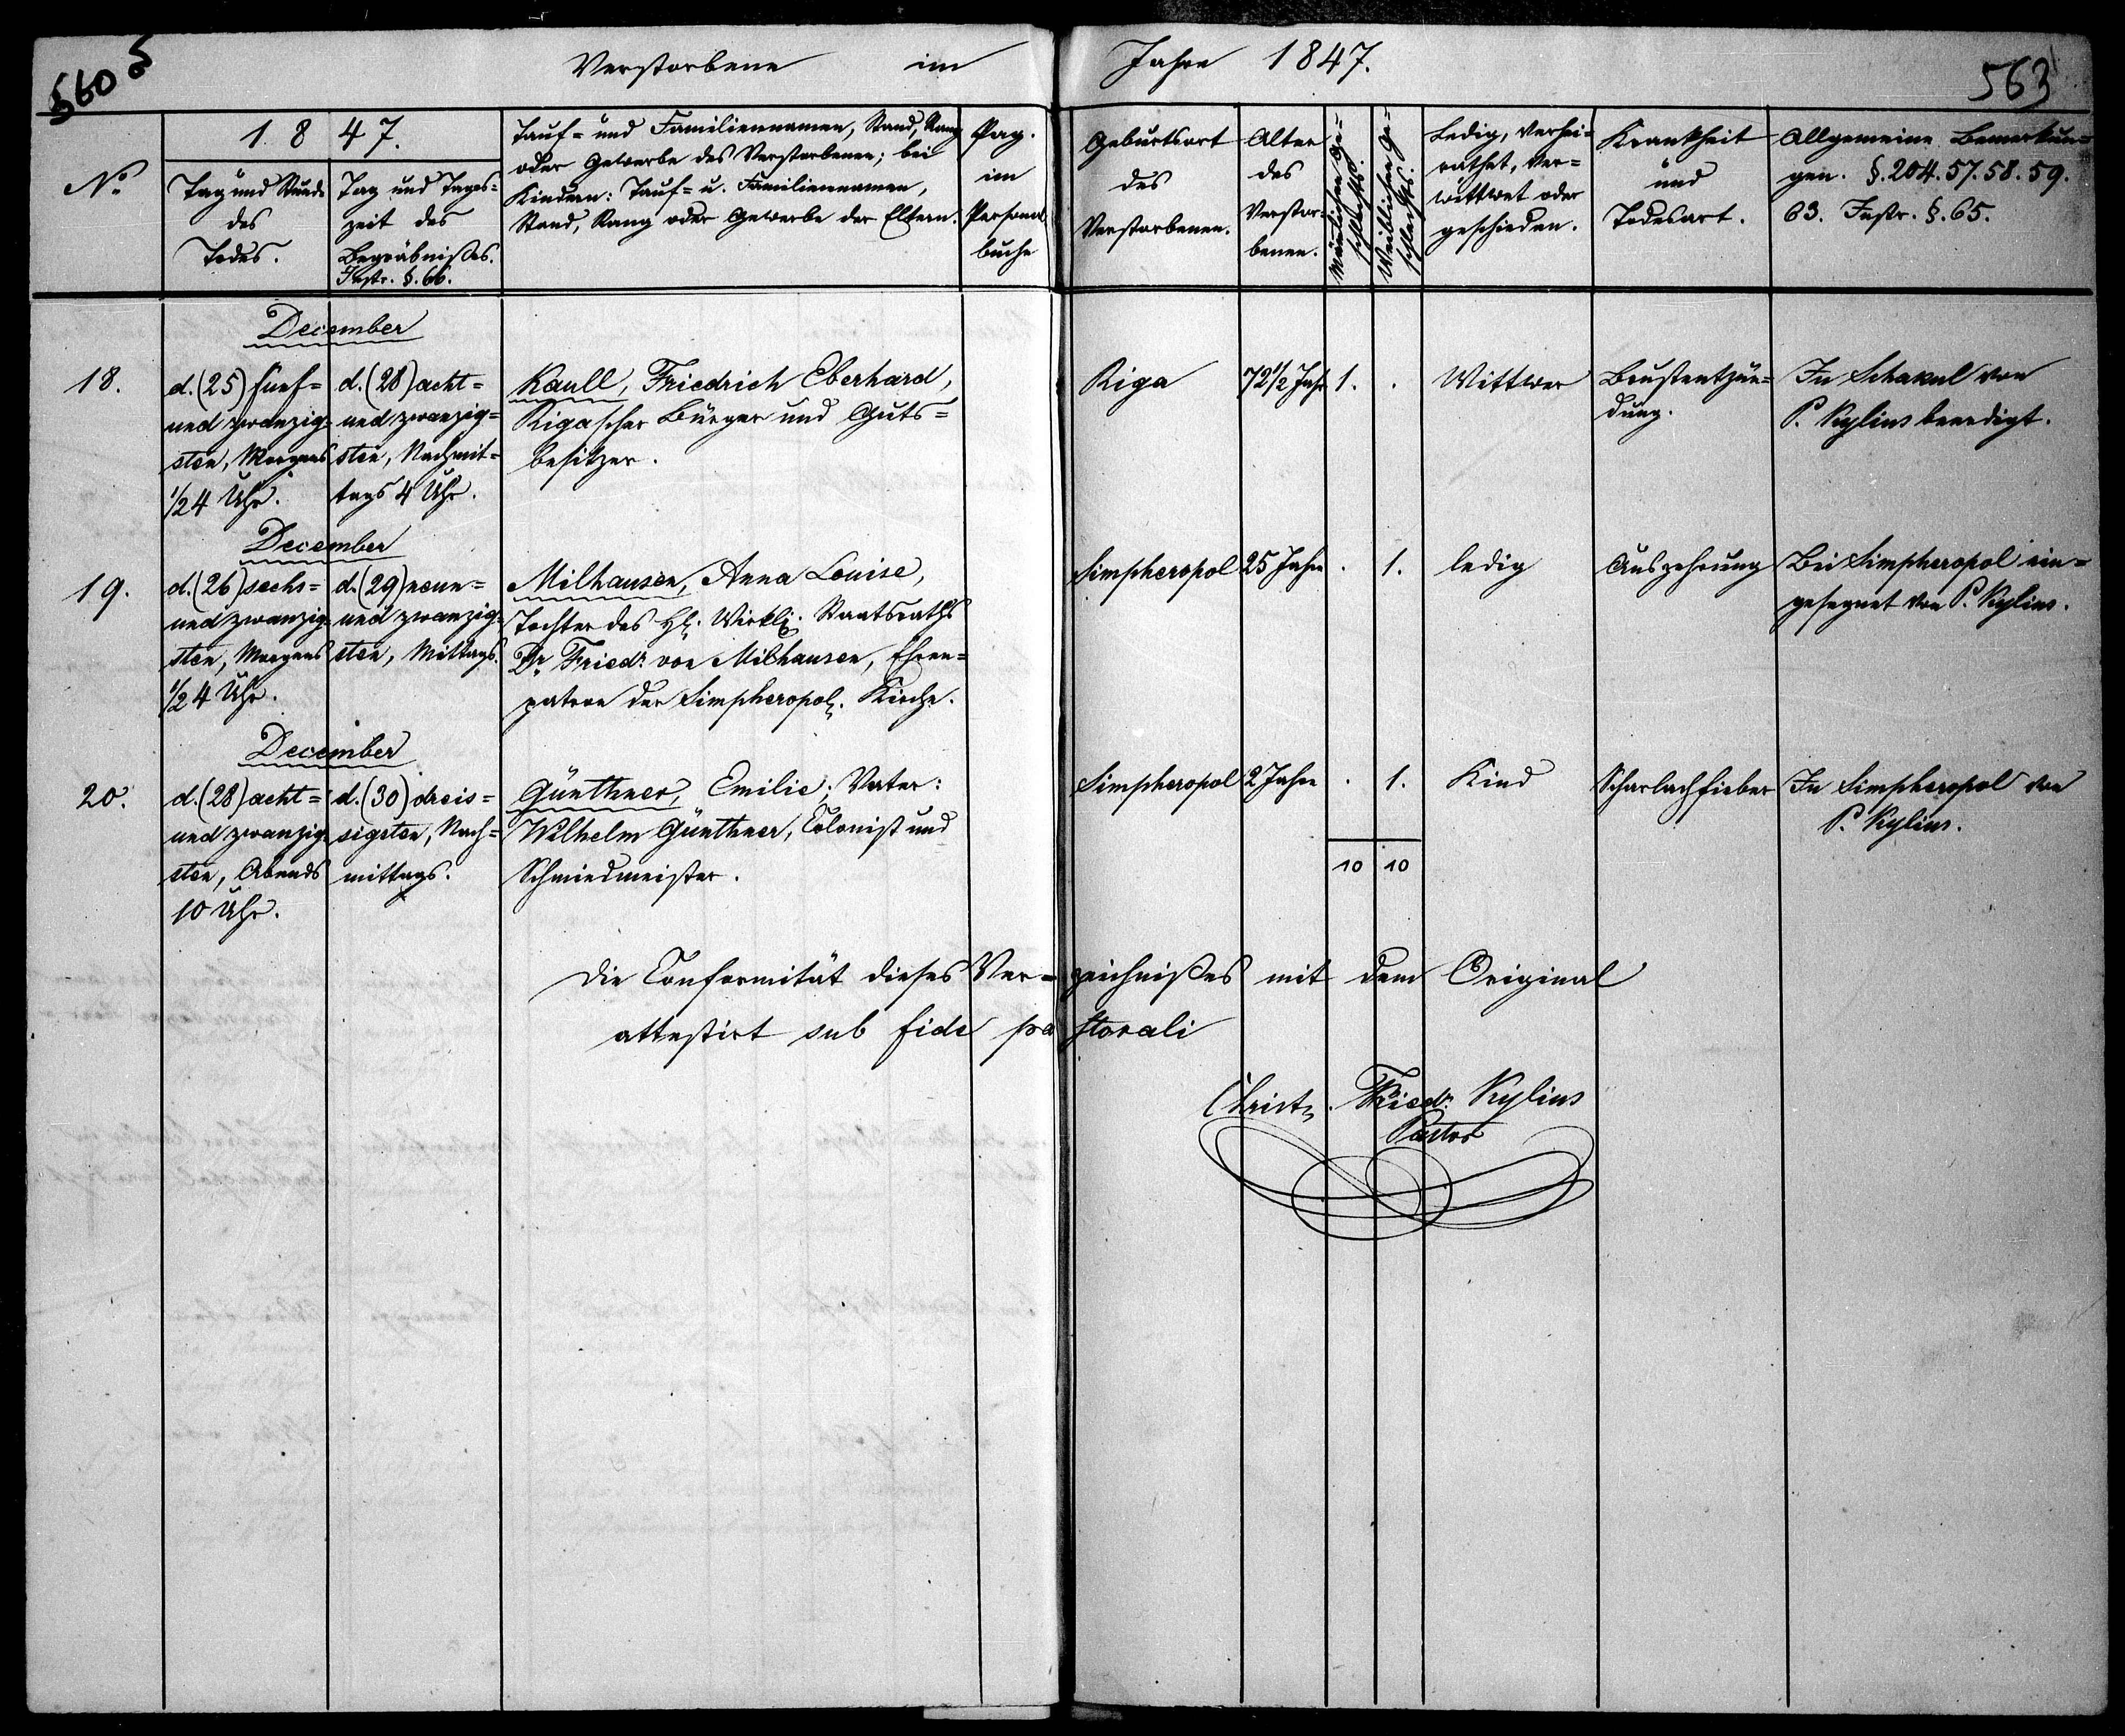 560
Verstorbene im Jahre 1847.
563
No.
1847.
Tag und Stunde
des
Todes.
Tag und Tages=
zeit des
Begräbnißes.
Instr. §. 66.
Tauf= und Familiennamen, Stand, Rang
oder Gewerbe des Verstorbenen; bei
Kindern: Tauf= u. Familiennamen,
Stand, Rang oder Gewerbe der Eltern.
Pag.
im
Personal
buche
Geburtsort
des
Verstorbenen.
Alter
des
Verstor=
benen.
Mänlichen Ge=
schlechts.
Weiblichen Ge=
schlechts.
Ledig, verhei=
rathet, ver=
wittwet oder
geschieden.
Krankheit
und
Todesart.
Allgemeine Bemerkun=
gen. §. 204. 57. 58. 59.
63. Instr. §. 65.
December
18.
d. (25) fünf=
und zwanzig=
sten, Morgens
1/2 4 Uhr.
d. (28) acht=
und zwanzig=
sten, Nachmit=
tags 4 Uhr.
Kaull, Friedrich Eberhard,
Rigascher Bürger und Guts=
besitzer.
Riga
72 1/2 Jahr
1.
.
Wittwer
Brustentzün=
dung.
In Schakul von
P. Kylius beerdigt.
December
19.
d. (26) sechs=
und zwanzig=
sten, Morgens
1/2 4 Uhr.
d. (29) neun=
und zwanzig=
sten, Mittags.
Milhausen, Anna Louise,
Tochter des H. Wirkl. Staatsraths
Dr. Friedr. von Milhausen, Ehren=
patron der Simpheropol. Kirche.
Simpheropol
25 Jahre
.
1.
ledig
Auszehrung
Bei Simpheropol ein=
gesegnet von P. Kylius.
December
20.
d. (28) acht=
und zwanzig=
sten, Abends
10 Uhr.
d. (30) dreis=
sigsten, Nach=
mittags.
Günthner, Emilie; Vater:
Wilhelm Günthner, Colonist und
Schmiedmeister.
Simpheropol
2 Jahre
.
1.
Kind
Scharlachfieber
In Simpheropol von
P. Kylius.
10 10
Die Conformität dieses Ver=zeichnißes mit dem Original
attestirt sub fide pastorali
Christ. Friedr. Kylius
Pastor